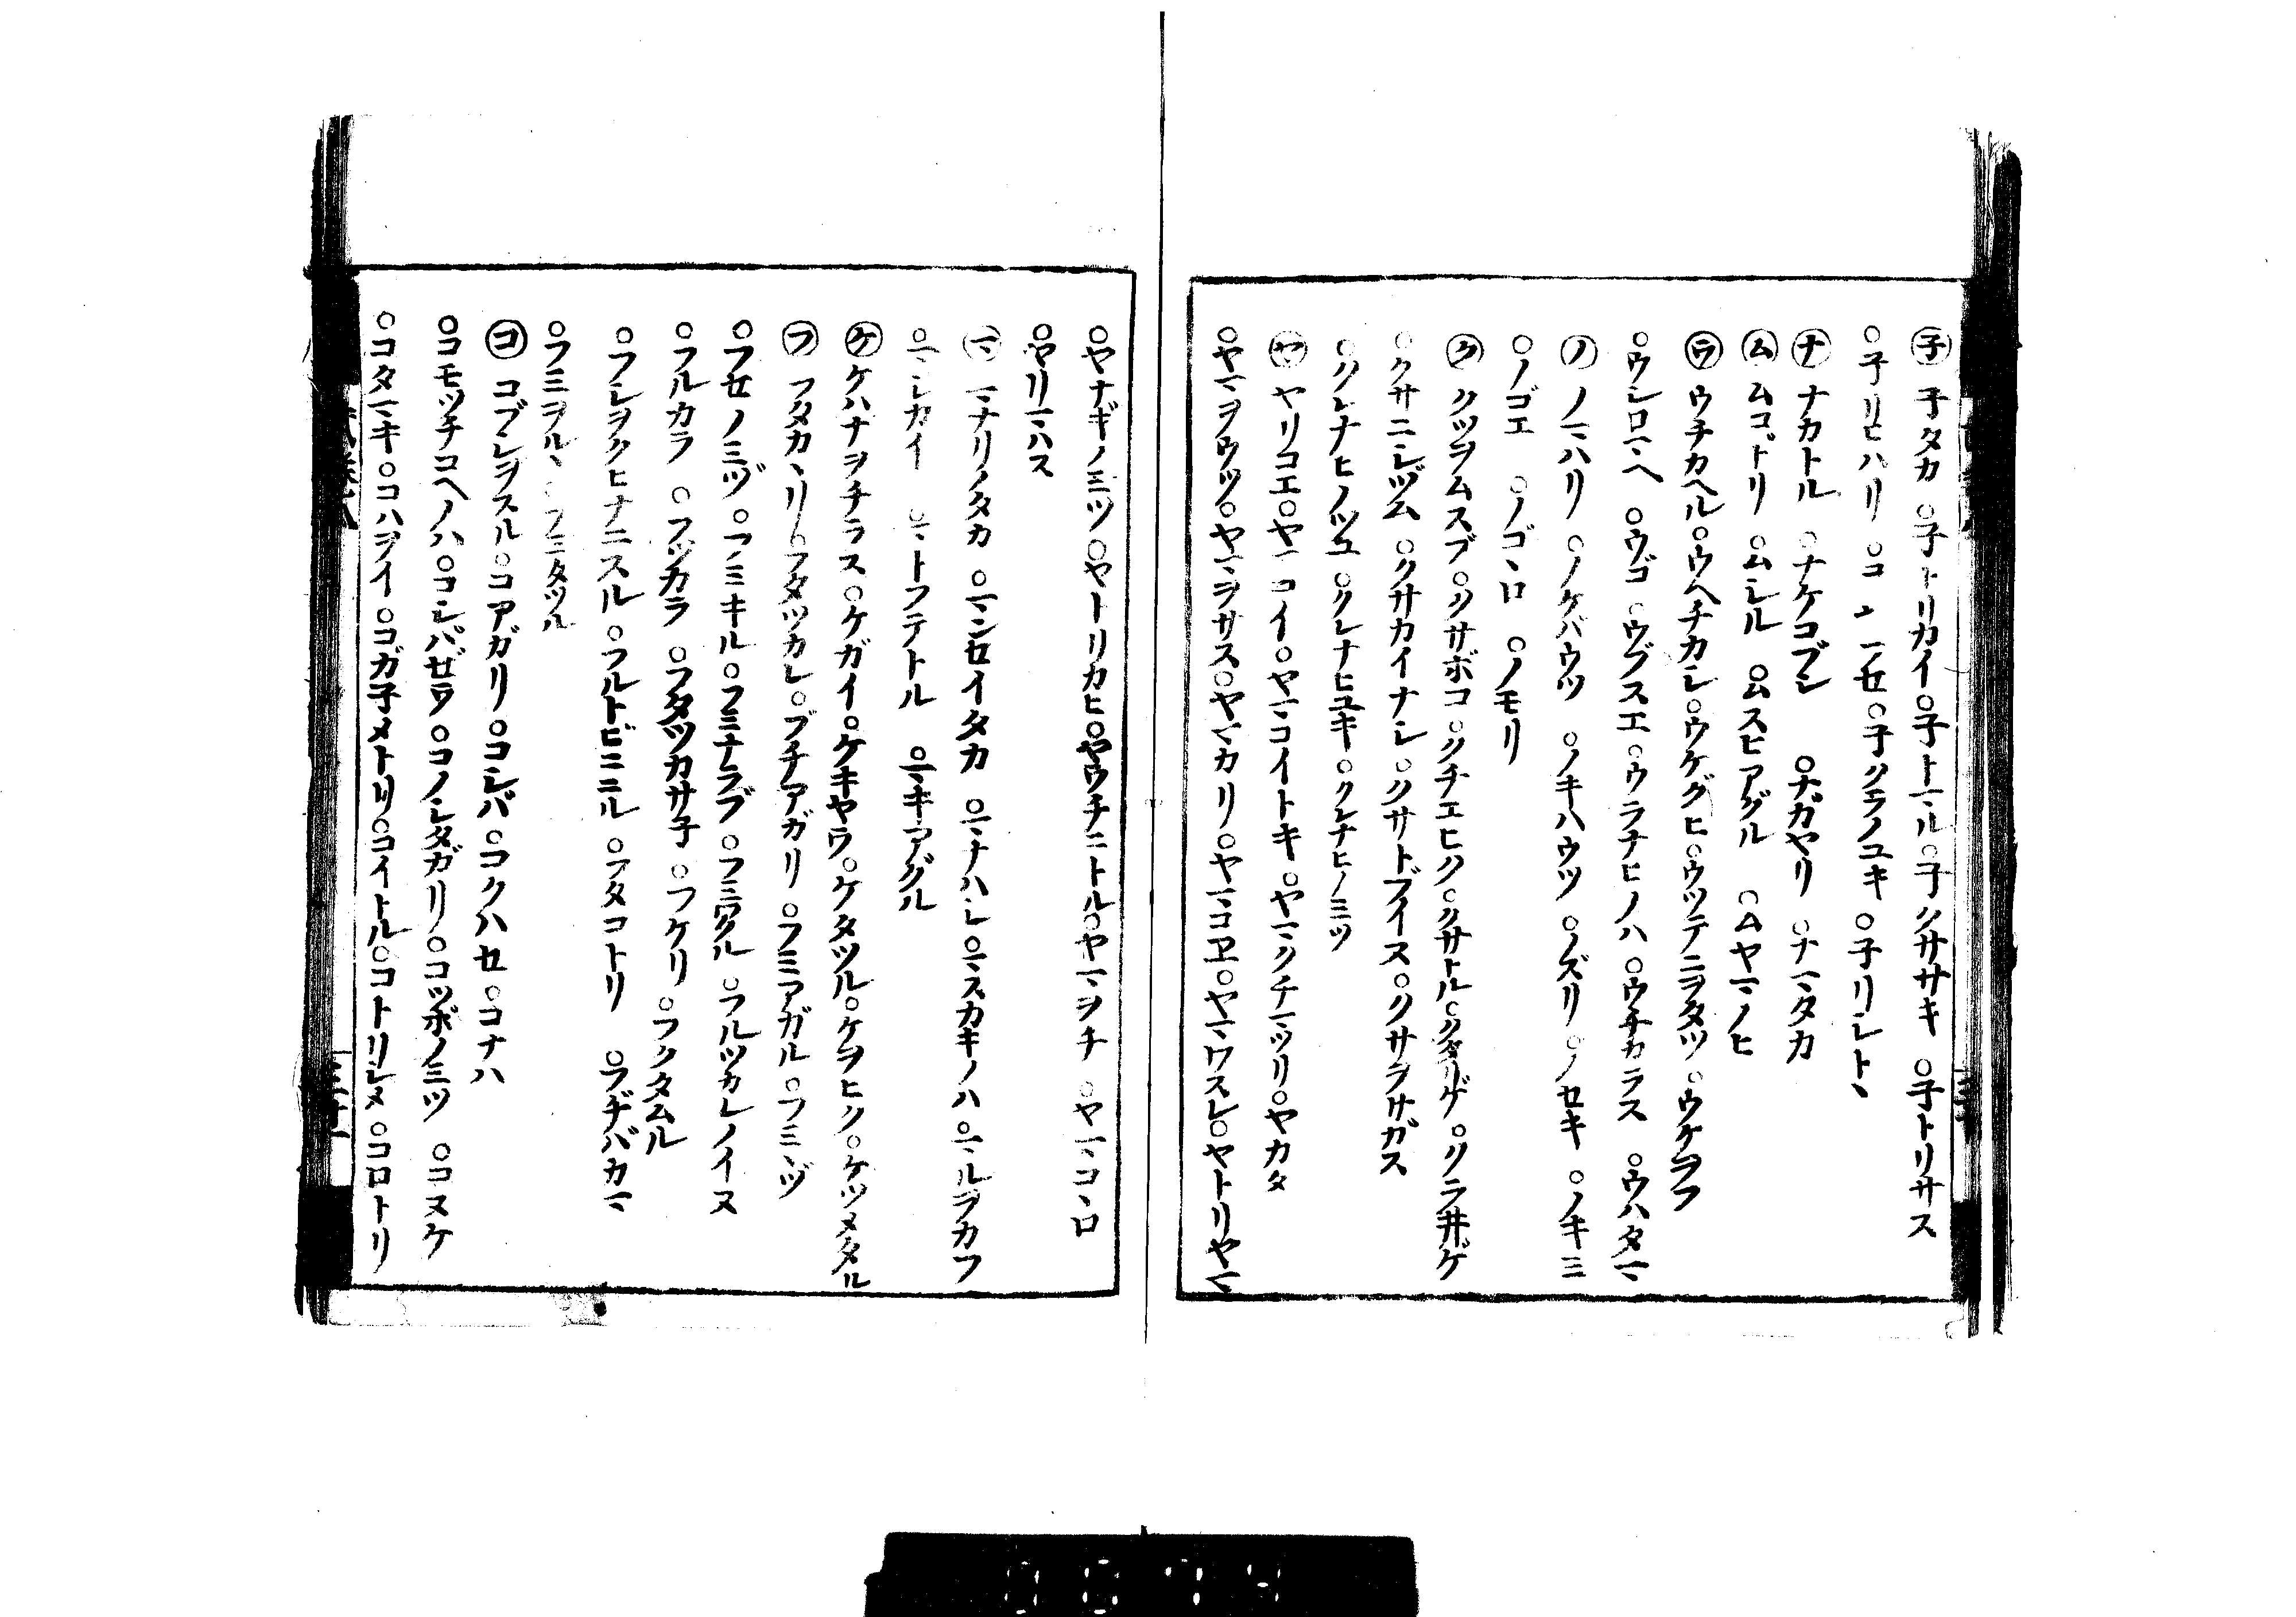 ㋧ 子タカ ○子トリカイ○子トマル○子クササキ ○子トリサス
○子リヒハリ ○コ 一セ○子クラノユキ ○子リシトヽ
㋤ ナカトル ○ナケコブシ ○ナガヤリ ○ナマタカ
㋰ ムコドリ ○ムシル ○ムスビアグル ○ムヤマノヒ
㋒ ウチカヘル○ウヘチカシ○ウケグヒ○ウツテニヲタツ○ウケヲフ
○ウシロマヘ ○ウゴ ○ウブスエ ○ウラナヒノハ ○ウチカラス ○ウハタマ
㋨ ノマハリ ○ノケバウツ ○ノキハウツ ○ノズリ ○ノセキ ○ノキミ
○ノゴエ ○ノゴヽロ ○ノモリ
㋗ クツヲムスブ ○クサボコ ○クチエヒク○クサトル○クダリゲ ○クニ井ゲ
○クサニシヅム ○クサカイナシ○クサトブイヌ○クサヲサガス
○クレナヒノツユ ○クレナヒユキ○クレナヒノミツ
㋳ ヤリコエ○ヤマコイ○ヤマコイトキ○ヤマクチマツリ○ヤカタ
○ヤマヲウツ○ヤマヲサス○ヤマカリ○ヤマコヱ○ヤマワスレ○ヤトリヤマ
○ヤナギノミツ○ヤトリカヒ○ヤウチニトル○ヤマヲチ ○ヤマコヽロ
○ヤリマハス
㋮ マナリノタカ ○マンセイタカ ○マナハシ○マスカキノハ○マルヲカフ
○マシカイ ○マトフテトル ○マキアグル
㋘ ケハナヲチラス○ケガイ○ケキヤウ○ケタツル○ケヲヒク○ケヅメタル
㋫ フタカヽリ○フタツカレ○ブチアガリ ○フミアガル○フミヅ
○フセノミヅ○フノミキル○フミナラブ○フミワクル ○フルツカレノイヌ
○フルカラ ○フヅカラ ○フタツカサ子 ○フケリ ○フクタムル
○フシヲクヒナニスル ○フルトビニニル ○フタコトリ ○フヂバカマ
○フミヲルヽ ○フミタツル
㋙ コブシヲスル○コアガリ○コシバ○コクハセ○コナハ
○コモツチコヘノハ○コシバゼウ○コノシタガリ○コツボノミツ ○コヌケ
○コタマキ○コハヲイ ○コガ子メトリ○コイトル○コトリシメ ○コロトリ